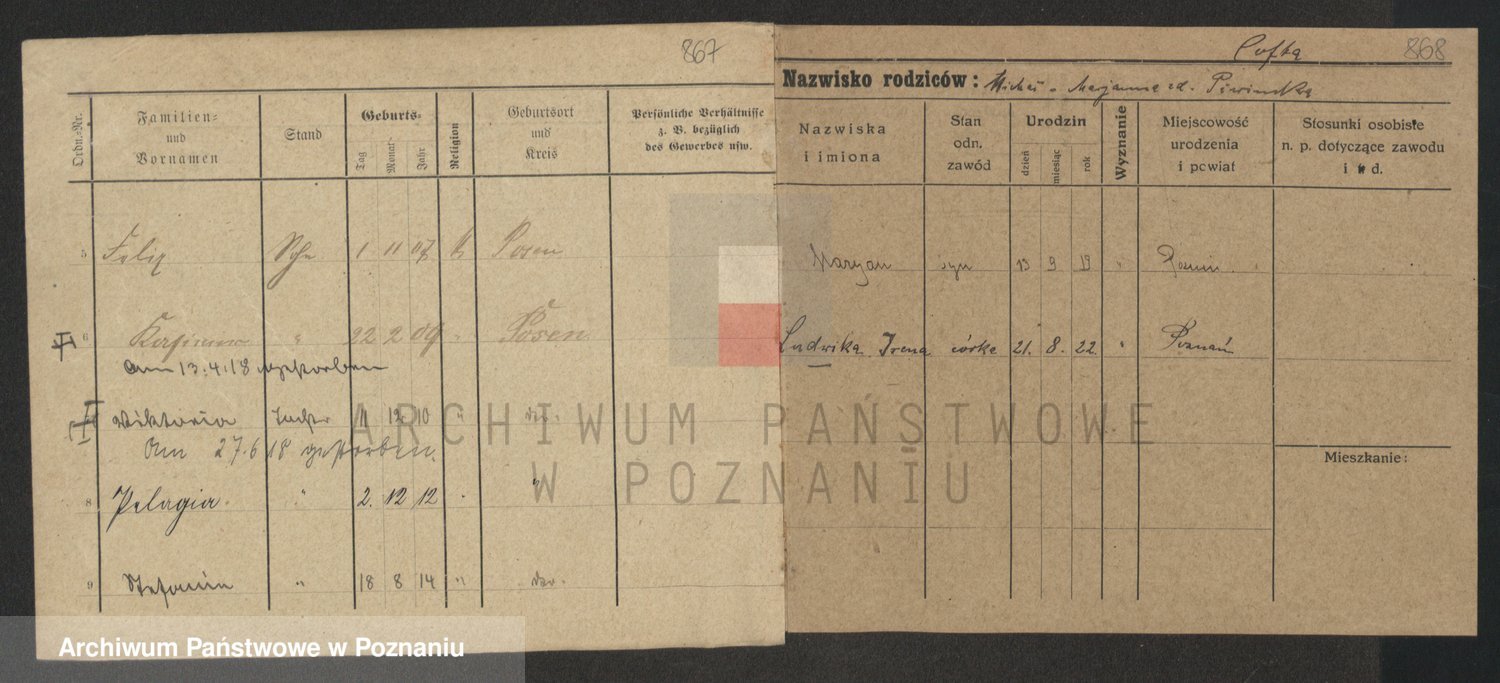 867
Ordn.-Nr.
Familien-
und
Vornamen
Stand
Geburts-
Tag
Monat
Jahr
Religion
Geburtsort
und
Kreis
Persönliche Verhältnisse
z. B. bezüglich
des Gewerbes usw.
5 Felix 1. 11 07 Posen
6 Kasimir " 22 2 09 " Posen
Am 13.4.18 gestorben
Wiktoria 11 12 10 " do.
Am 27.6.18 gestorben.
8 Pelagia. " 2. 12 12 " "
9 Stefania " 18 8 14 " do.
Cofta 868
Nazwisko rodziców: Michał Marjanna zd. Piwińska
Nazwiska
i imiona
Stan
odn.
zawód
Urodzin
dzień
miesiąc
rok
Wyznanie
Miejscowość
urodzenia
i powiat
Stosunki osobiste
n. p. dotyczące zawodu
i t d.
Maryan syn 13 9 19 "
Ludwika Irena córka 21. 8. 22. " Poznań
Mieszkanie:
ARCHIWUM PAŃSTWOWE
W POZNANIU
Archiwum Państwowe w Poznaniu